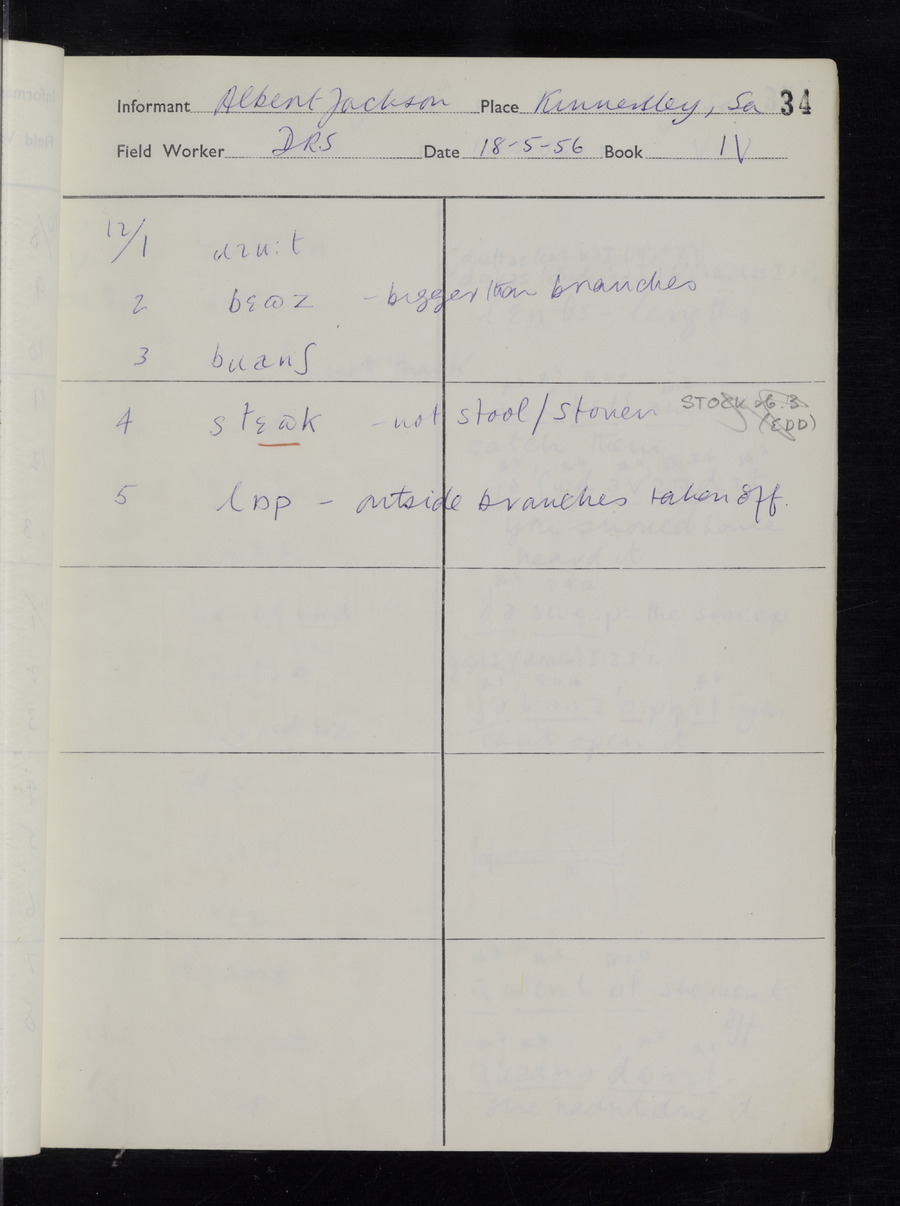 Informant Albert Jackson Place Kinnersley, Sa 34
Field Worker DRS Date 18-5-56 Book IV
12/1 ɹɪu:t
2 bɛɷz - bigger than branches
3
4 stɛɷk - not stool/stoven STOCK (EDD)
5 lɒp - outside branches taken off.